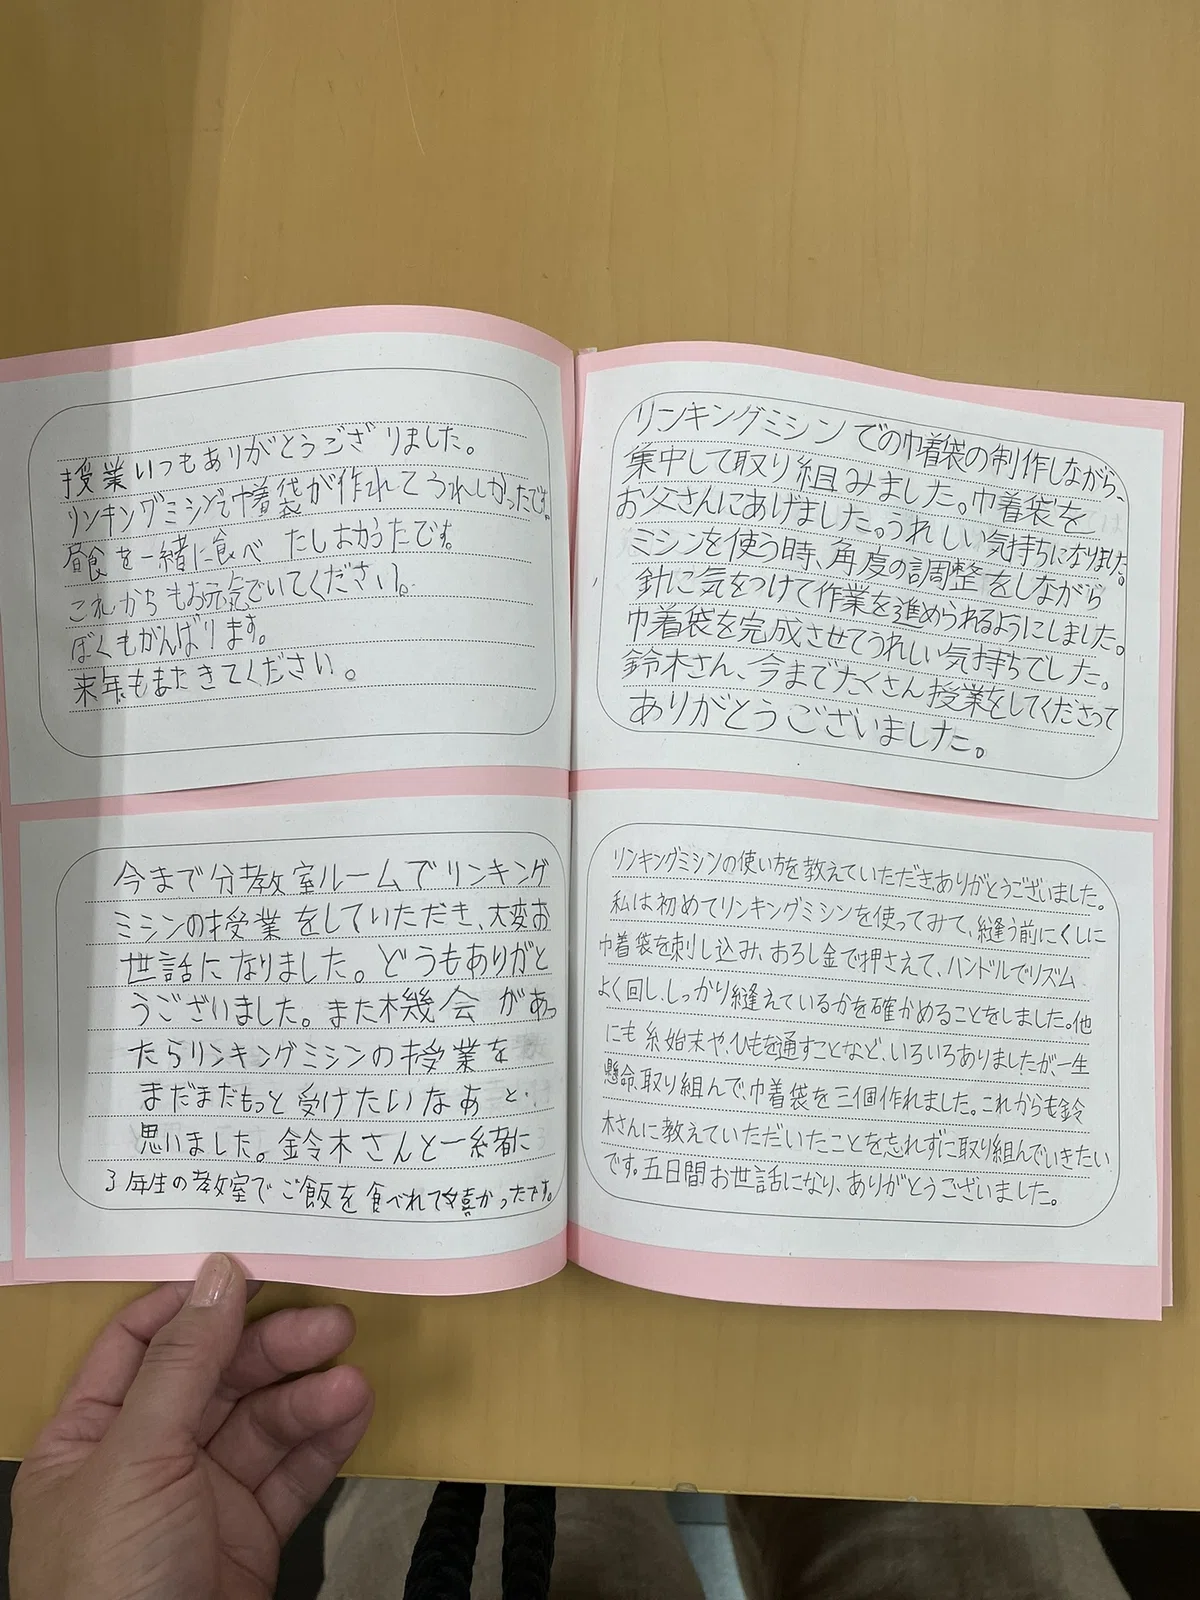 授業いつもありがとうございました。
リンキングミシンで巾着袋が作れてうれしかったです。
昼食を一緒に食べ たしおかったです。
これからもお元気でいてください。
ぼくもがんばります。
来年もまたきてください。
今まで分教室ルームでリンキング
ミシンの授業をしていただき、大変お
世話になりました。どうもありがと
うございました。また機会があっ
たらリンキングミシンの授業を
まだまだもっと受けたいなあと、
思いました。鈴木さんと一緒に
3年生の教室でご飯を食べれて嬉かったです。
リンキングミシンでの巾着袋の制作しながら、
集中して取り組みました。巾着袋を
お父さんにあげました。うれしい気持ちになりました。
ミシンを使う時、角度の調整をしながら
針に気をつけて作業を進められるようにしました。
巾着袋を完成させてうれしい気持ちでした。
鈴木さん、今までたくさん授業をしてくださって
ありがとうございました。
リンキングミシンの使い方を教えていただき、ありがとうございました。
私は初めてリンキングミシンを使ってみて、縫う前にくしに
巾着袋を刺し込み、おろし金で押さえて、ハンドルでリズム
よく回し、しっかり縫えているかを確かめることをしました。他
にも糸始末や、ひもを通すことなど、いろいろありましたが、一生
懸命、取り組んで、巾着袋を三個作れました。これからも鈴
木さんに教えていただいたことを忘れずに取り組んでいきたい
です。五日間お世話になり、ありがとうございました。